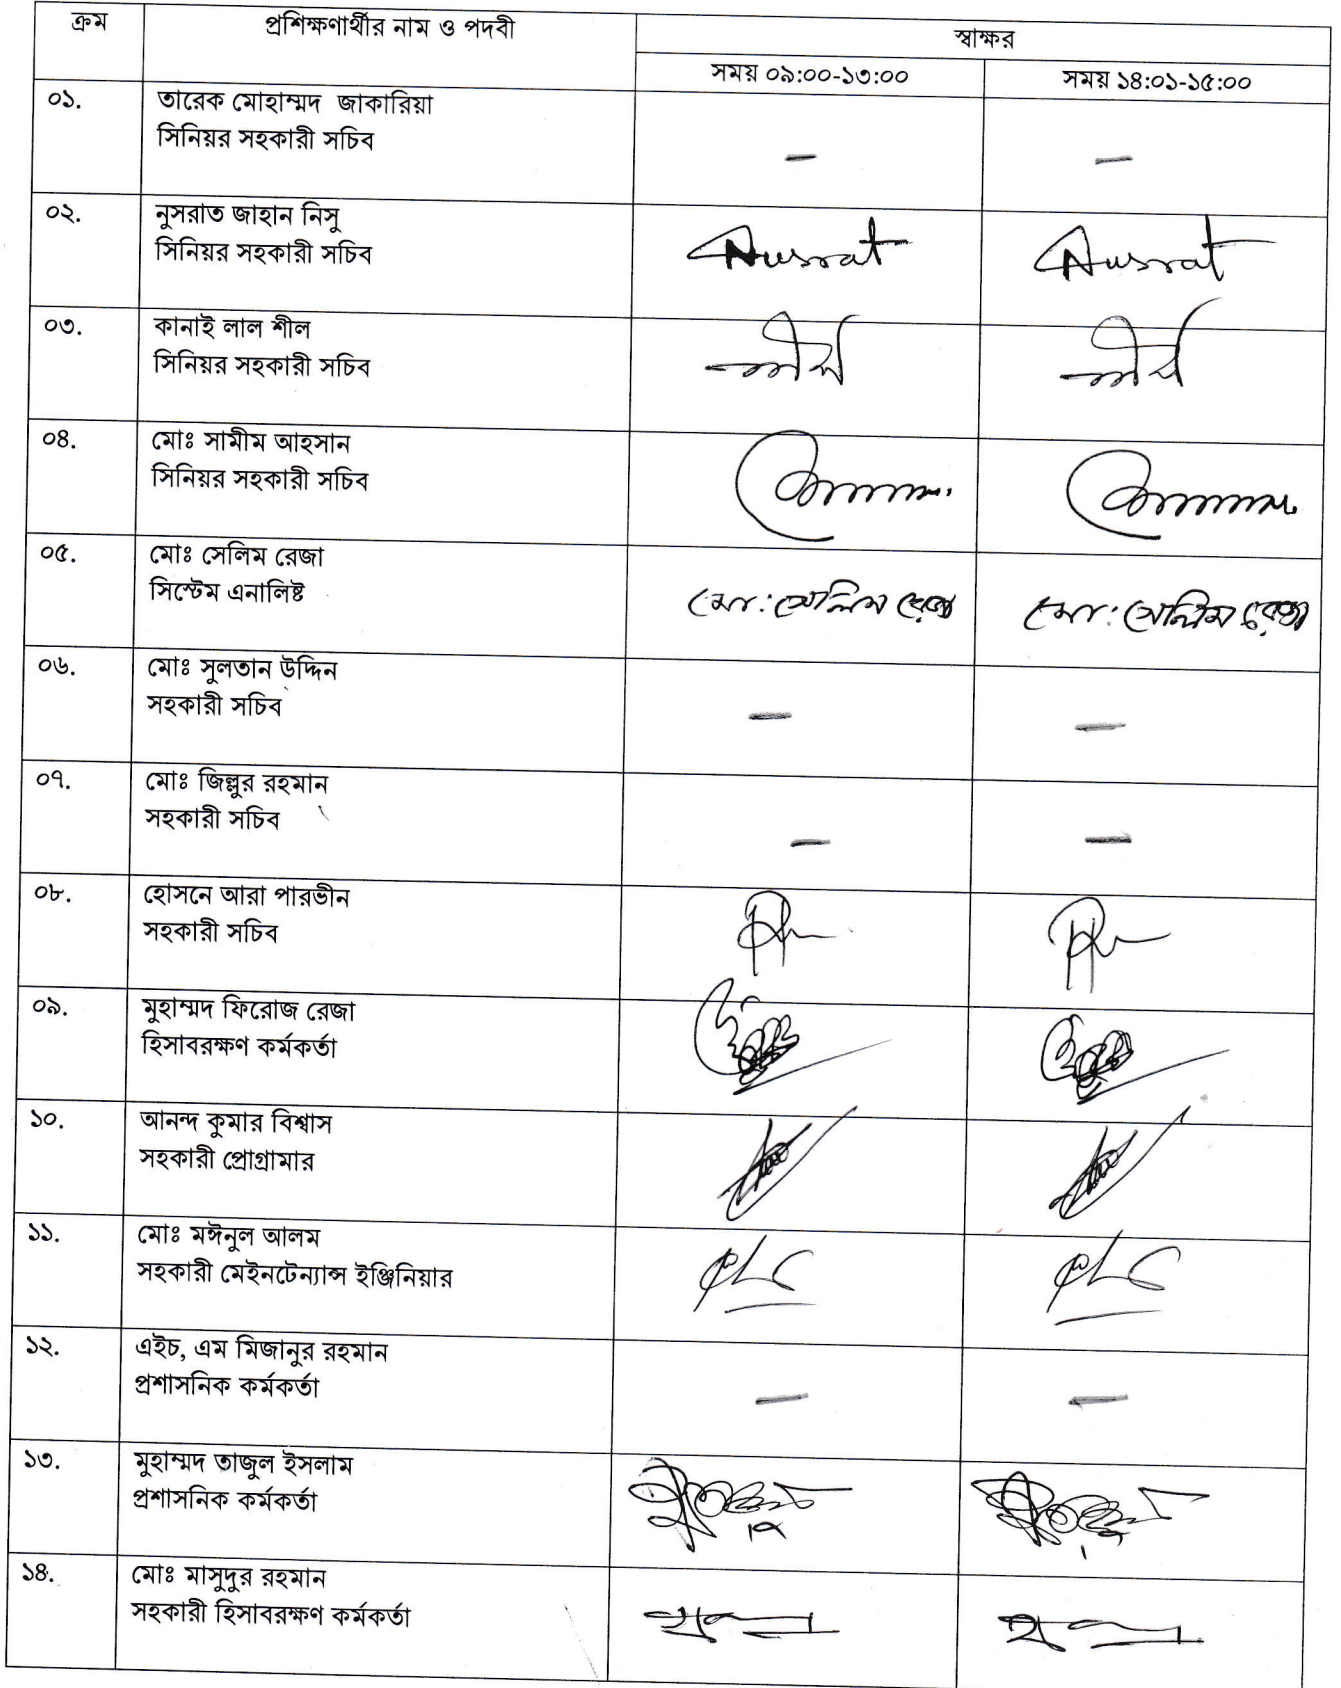 ক্রম প্রশিক্ষণার্থীর নাম ও পদবী স্বাক্ষর
সময় ০৯:০০-১৩:০০ সময় ১৪:০১-১৫:০০
০১. তারেক মোহাম্মদ জাকারিয়া
সিনিয়র সহকারী সচিব
০২. নুসরাত জাহান নিসু
সিনিয়র সহকারী সচিব
Nusrat Nusrat
০৩. কানাই লাল শীল
সিনিয়র সহকারী সচিব
০৪. মোঃ সামীম আহসান
সিনিয়র সহকারী সচিব
০৫. মোঃ সেলিম রেজা
সিস্টেম এনালিষ্ট
মো: সেলিম রেজা মো: সেলিম রেজা
০৬. মোঃ সুলতান উদ্দিন
সহকারী সচিব
০৭. মোঃ জিল্লুর রহমান
সহকারী সচিব
০৮. হোসনে আরা পারভীন
সহকারী সচিব
০৯. মুহাম্মদ ফিরোজ রেজা
হিসাবরক্ষণ কর্মকর্তা
১০. আনন্দ কুমার বিশ্বাস
সহকারী প্রোগ্রামার
১১. মোঃ মঈনুল আলম
সহকারী মেইনটেন্যান্স ইঞ্জিনিয়ার
১২. এইচ, এম মিজানুর রহমান
প্রশাসনিক কর্মকর্তা
১৩. মুহাম্মদ তাজুল ইসলাম
প্রশাসনিক কর্মকর্তা
১৪. মোঃ মাসুদুর রহমান
সহকারী হিসাবরক্ষণ কর্মকর্তা